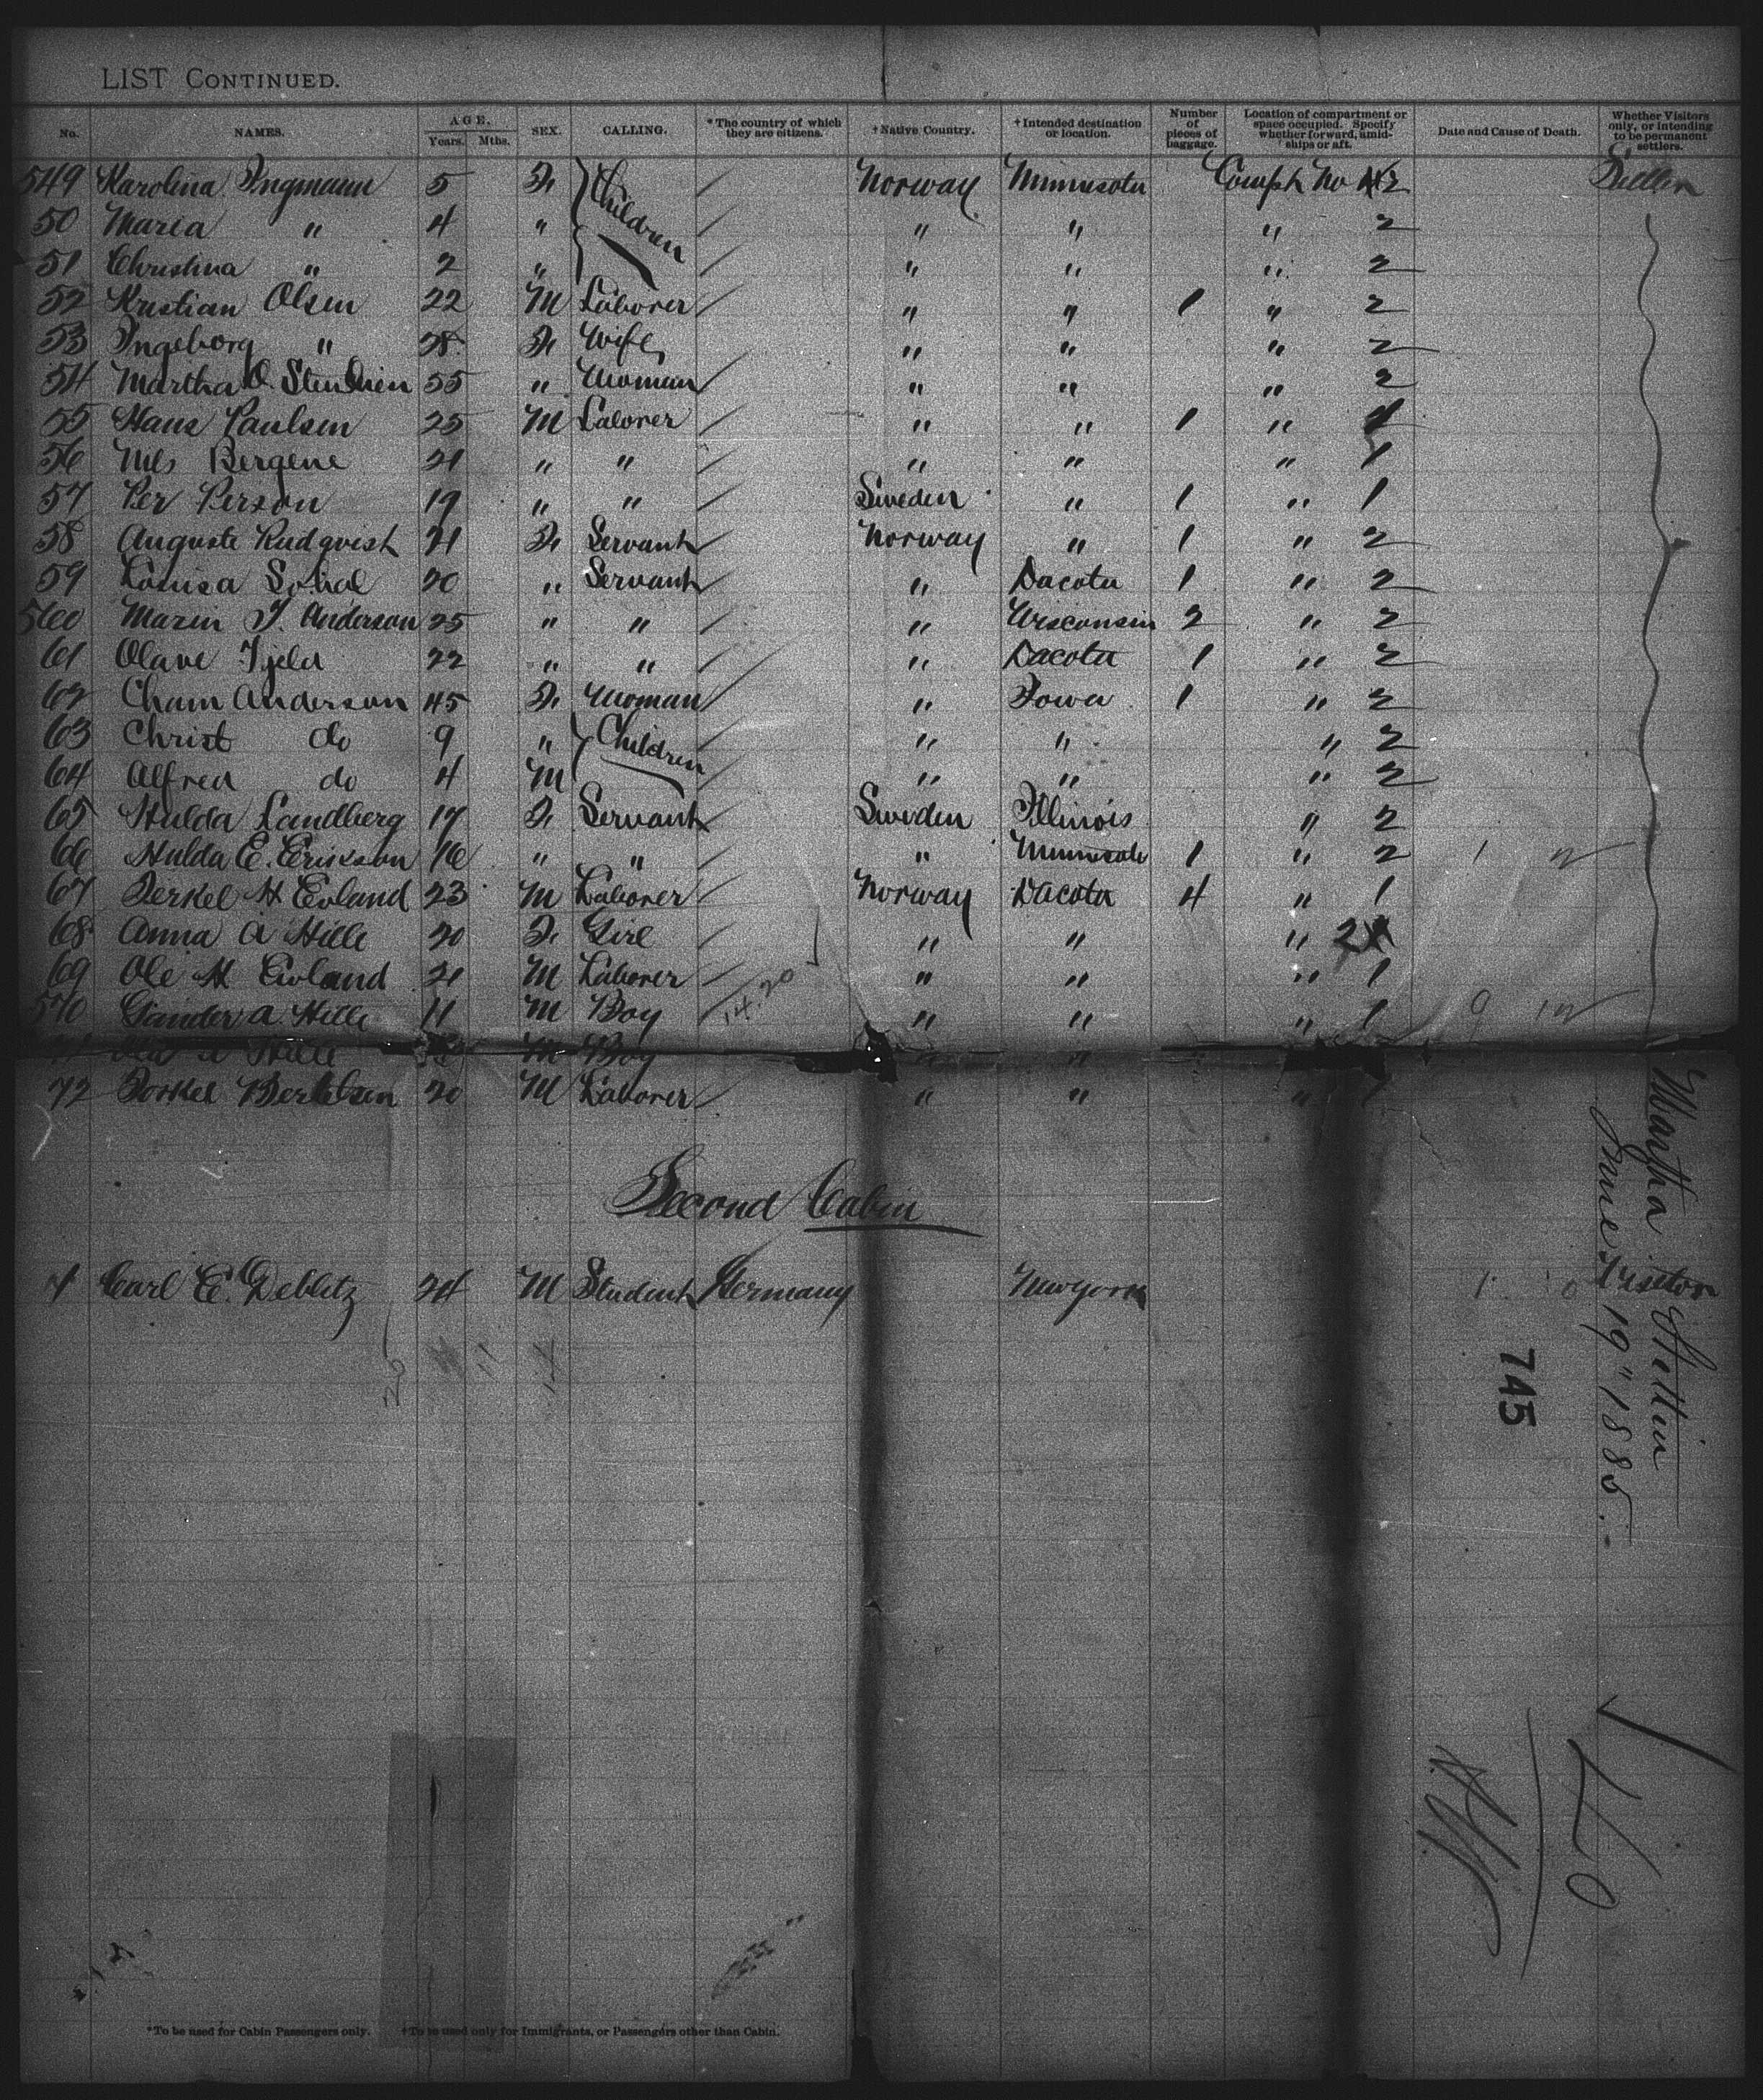 LIST CONTINUED.
No. NAMES. AGE. Years. Mths. SEX. CALLING. *The country of which they are citizens. †Native Country. †Intended destination or location. Number of pieces of baggage. Location of compartment or space occupied. Specify whether forward, amidships or aft. Date and Cause of Death. Whether Visitors only, or intending to be permanent settlers.
549 Karolina Ingmann 5 F. Children Norway Minnesota Compt No 2
50 Maria " 4 " " " " 2
51 Christina " 2 " " " " 2
52 Kristian Olsen 22 M Laborer " " 1 " 2
53 Ingeborg " 28 F. Wife " " " 2
54 Martha O. 55 " Woman " " " 2
55 Hans Paulsen 25 M Laborer " " 1 " 1
56 Nils Bergene 21 " " " " " 1
57 Per Person 19 " " Sweden " 1 " 1
58 Auguste Rudqvist 21 F. Servant Norway " 1 " 2
59 Louisa 20 " Servant " Dacota 1 " 2
560 Maren J. Anderson 25 " " " Wisconsin 2 " 2
61 Olave Tjeld 22 " " " Dacota 1 " 2
62 Cham Anderson 45 F. Woman " Iowa 1 " 2
63 Christ do 9 " Children " " " 2
64 Alfred do 4 M " " " 2
65 Hulda Landberg 17 F. Servant Sweden Illinois " 2
66 Hulda E. Erikson 16 " " " Minnesota 1 " 2 1
67 Terkel H Evland 23 M Laborer Norway Dacota 4 " 1
68 Anna A Hille 20 F. Girl " " " 2
69 Ole H Evland 21 M Laborer " " " 1
570 Gunder A. Hille 11 M Boy 14.20 " " " 1 9
A Hille M Boy " "
72 Torkel Bertelsen 20 M Laborer " " " 1
Second Cabin
1 Carl E. Deblitz 24 M Student Germany New York 1 0 Visitor
Martha Stettin
June 19" 1885.
745
*To be used for Cabin Passengers only. †To be used only for Immigrants, or Passengers other than Cabin.